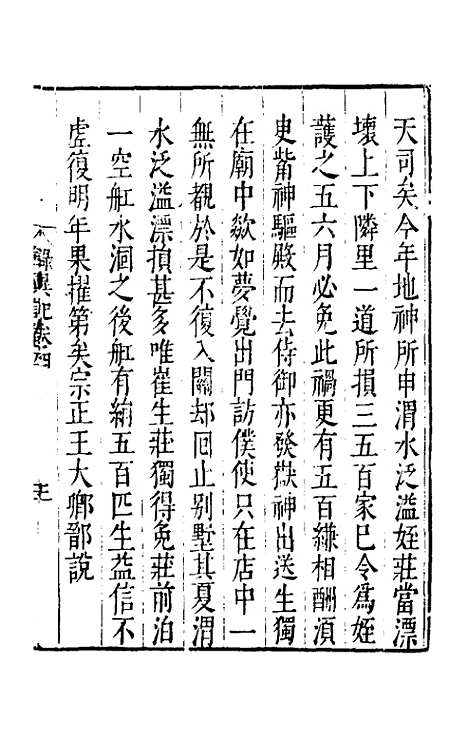 天司矣今年地神所申渭水泛溢姪莊當漂
壞上下隣里一道所損三五百家已令爲姪
護之五六月必免此禍更有五百縑相酬須
臾觜神驅殿而去侍御亦發嶽神出送生獨
在廟中欻如夢覺出門訪僕使只在店中一
無所覩於是不復入關却回止别墅其夏渭
水泛溢漂損甚多唯崔生莊獨得免莊前泊
一空舡水涸之後舡有絹五百匹生益信不
虛復明年果擢第矣宗正王大卿鄑說
錄異記卷四